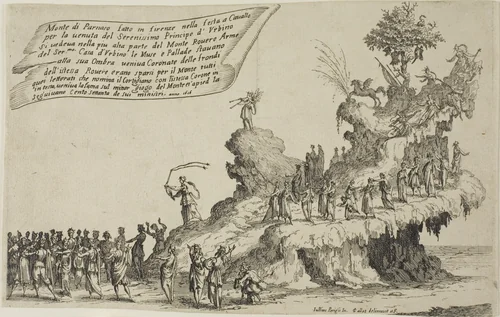 Monte di Parnaso fatto in firenze nella festa a Cavallo
per la venuta del Serenissimo Principe d' Vrbino
Si vedeva nella piu alta parte del Monte Rouere Arme
del Ser.mo Casa d'Vrbino le Muse e Pallade stauano
alla sua Ombra veniua Coronate delle frondi
dell'istessa Rouere erano sparsi per il Monte tutti
quei letterati che nomina il Cortigiano con l'istessa Corone in
testa, veniua la fama sul minor giogo del Monte
Seguiuano Cento Settanta de suoi ministri
Iulius Parigii In. Callot delineauit et F